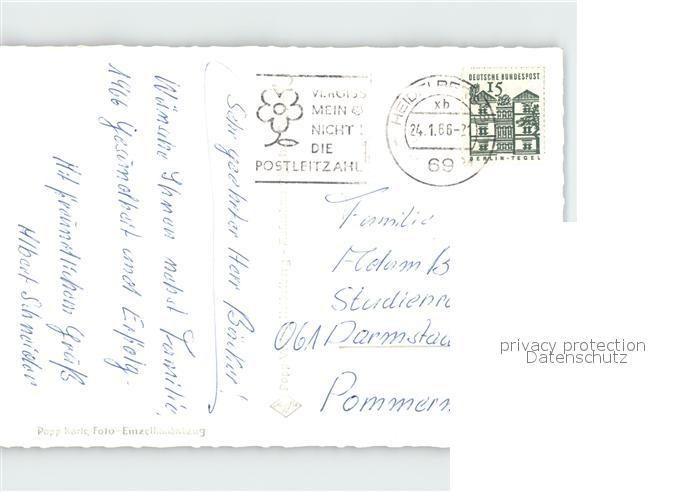 Sehr geehrter Herr Bäcker!
Wünsche Ihnen nebst Familie,
1966 Gesundheit und Erfolg.
Mit freundlichem Gruß
Albert Schneider
VERGISS
MEIN
NICHT
DIE
POSTLEITZAHL
HEIDELBE
xb
24.1.66-21
69
DEUTSCHE BUNDESPOST
15
BERLIN-TEGEL
Familie
Adam B
Studienr
061 Darmstad
Pommern
privacy protection
Datenschutz
Popp Karte, Foto-Einzelhandabzug